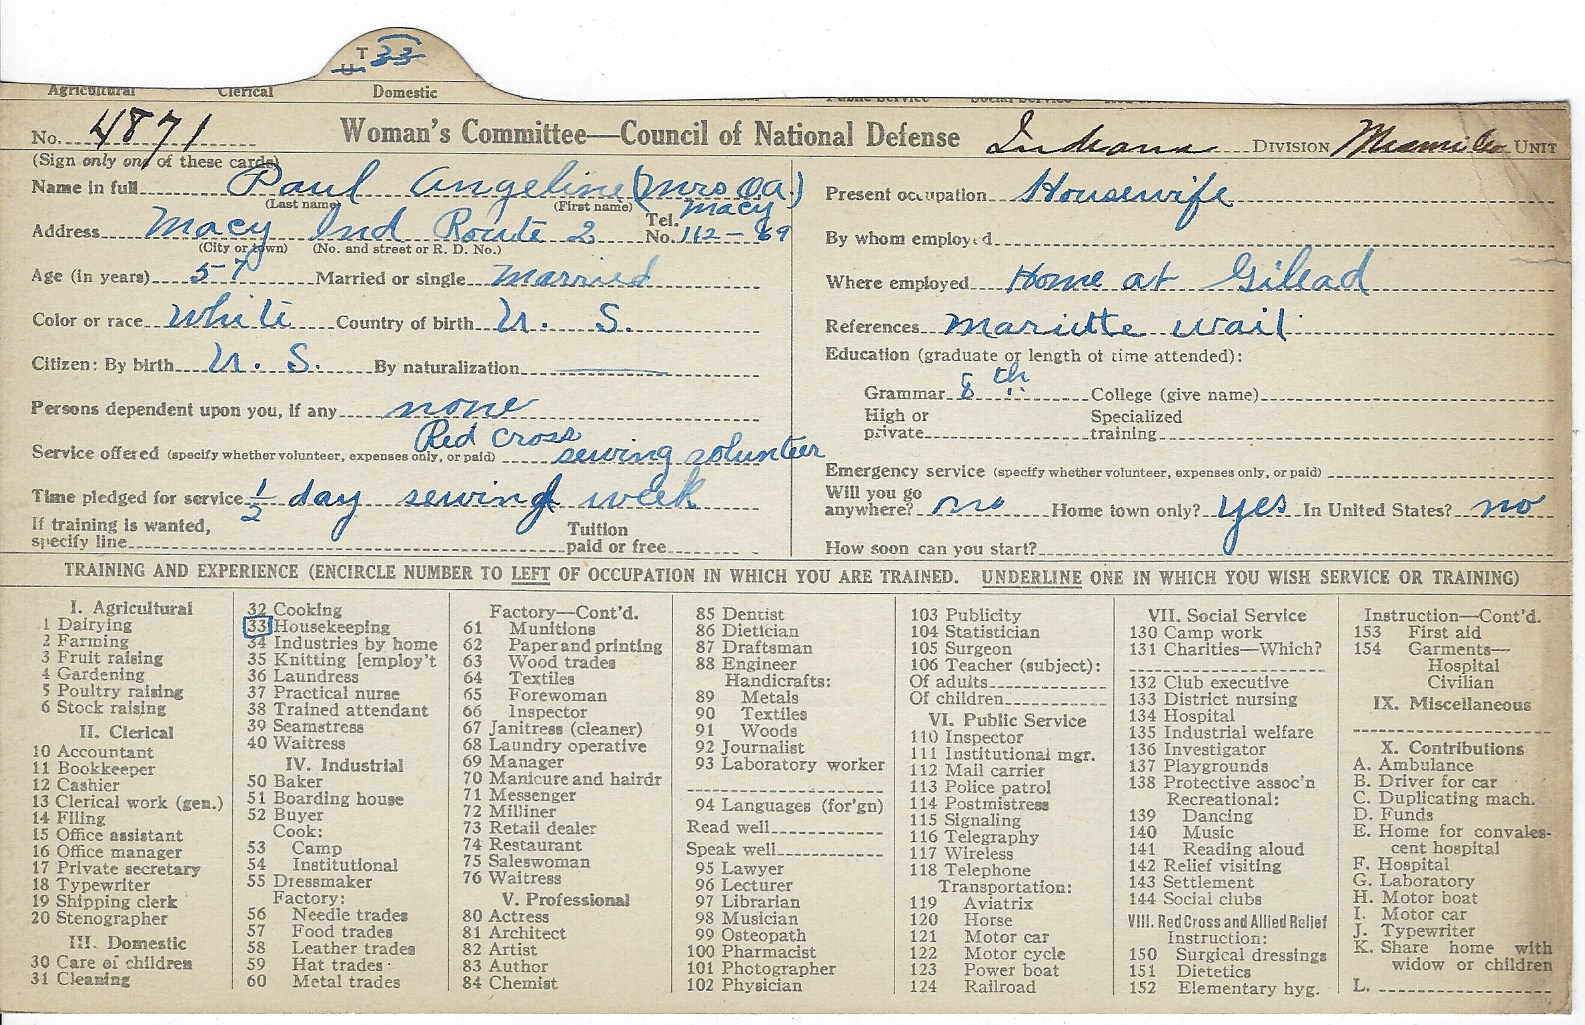 T 33
Agricultural Clerical Domestic Public Service Social Service
No. 4871 Woman's Committee—Council of National Defense Indiana DIVISION Miami Co UNIT
(Sign only one of these cards)
Name in full Paul Angeline (Mrs O.A.)
(Last name) (First name)
Address Macy Ind Route 2 Tel. No. Macy 112-69
(City or town) (No. and street or R. D. No.)
Age (in years) 57 Married or single Married
Color or race White Country of birth U. S.
Citizen: By birth U. S. By naturalization
Persons dependent upon you, if any none
Service offered (specify whether volunteer, expenses only, or paid) Red Cross sewing volunteer
Time pledged for service 1/2 day sewing week
If training is wanted, specify line Tuition paid or free
Present occupation Housewife
By whom employed
Where employed Home at Gilead
References Mariette Wail
Education (graduate or length of time attended):
Grammar 8th College (give name)
High or private Specialized training
Emergency service (specify whether volunteer, expenses only, or paid)
Will you go anywhere? no Home town only? yes In United States? no
How soon can you start?
TRAINING AND EXPERIENCE (ENCIRCLE NUMBER TO LEFT OF OCCUPATION IN WHICH YOU ARE TRAINED. UNDERLINE ONE IN WHICH YOU WISH SERVICE OR TRAINING)
I. Agricultural
1 Dairying
2 Farming
3 Fruit raising
4 Gardening
5 Poultry raising
6 Stock raising
II. Clerical
10 Accountant
11 Bookkeeper
12 Cashier
13 Clerical work (gen.)
14 Filing
15 Office assistant
16 Office manager
17 Private secretary
18 Typewriter
19 Shipping clerk
20 Stenographer
III. Domestic
30 Care of children
31 Cleaning
32 Cooking
33 Housekeeping
34 Industries by home
35 Knitting [employ't
36 Laundress
37 Practical nurse
38 Trained attendant
39 Seamstress
40 Waitress
IV. Industrial
50 Baker
51 Boarding house
52 Buyer
Cook:
53 Camp
54 Institutional
55 Dressmaker
Factory:
56 Needle trades
57 Food trades
58 Leather trades
59 Hat trades
60 Metal trades
Factory—Cont'd.
61 Munitions
62 Paper and printing
63 Wood trades
64 Textiles
65 Forewoman
66 Inspector
67 Janitress (cleaner)
68 Laundry operative
69 Manager
70 Manicure and hairdr
71 Messenger
72 Milliner
73 Retail dealer
74 Restaurant
75 Saleswoman
76 Waitress
V. Professional
80 Actress
81 Architect
82 Artist
83 Author
84 Chemist
85 Dentist
86 Dietician
87 Draftsman
88 Engineer
Handicrafts:
89 Metals
90 Textiles
91 Woods
92 Journalist
93 Laboratory worker
94 Languages (for'gn)
Read well
Speak well
95 Lawyer
96 Lecturer
97 Librarian
98 Musician
99 Osteopath
100 Pharmacist
101 Photographer
102 Physician
103 Publicity
104 Statistician
105 Surgeon
106 Teacher (subject):
Of adults
Of children
VI. Public Service
110 Inspector
111 Institutional mgr.
112 Mail carrier
113 Police patrol
114 Postmistress
115 Signaling
116 Telegraphy
117 Wireless
118 Telephone
Transportation:
119 Aviatrix
120 Horse
121 Motor car
122 Motor cycle
123 Power boat
124 Railroad
VII. Social Service
130 Camp work
131 Charities—Which?
132 Club executive
133 District nursing
134 Hospital
135 Industrial welfare
136 Investigator
137 Playgrounds
138 Protective assoc'n
Recreational:
139 Dancing
140 Music
141 Reading aloud
142 Relief visiting
143 Settlement
144 Social clubs
VIII. Red Cross and Allied Relief
Instruction:
150 Surgical dressings
151 Dietetics
152 Elementary hyg.
Instruction—Cont'd.
153 First aid
154 Garments—
Hospital
Civilian
IX. Miscellaneous
X. Contributions
A. Ambulance
B. Driver for car
C. Duplicating mach.
D. Funds
E. Home for convales-
cent hospital
F. Hospital
G. Laboratory
H. Motor boat
I. Motor car
J. Typewriter
K. Share home with
widow or children
L.